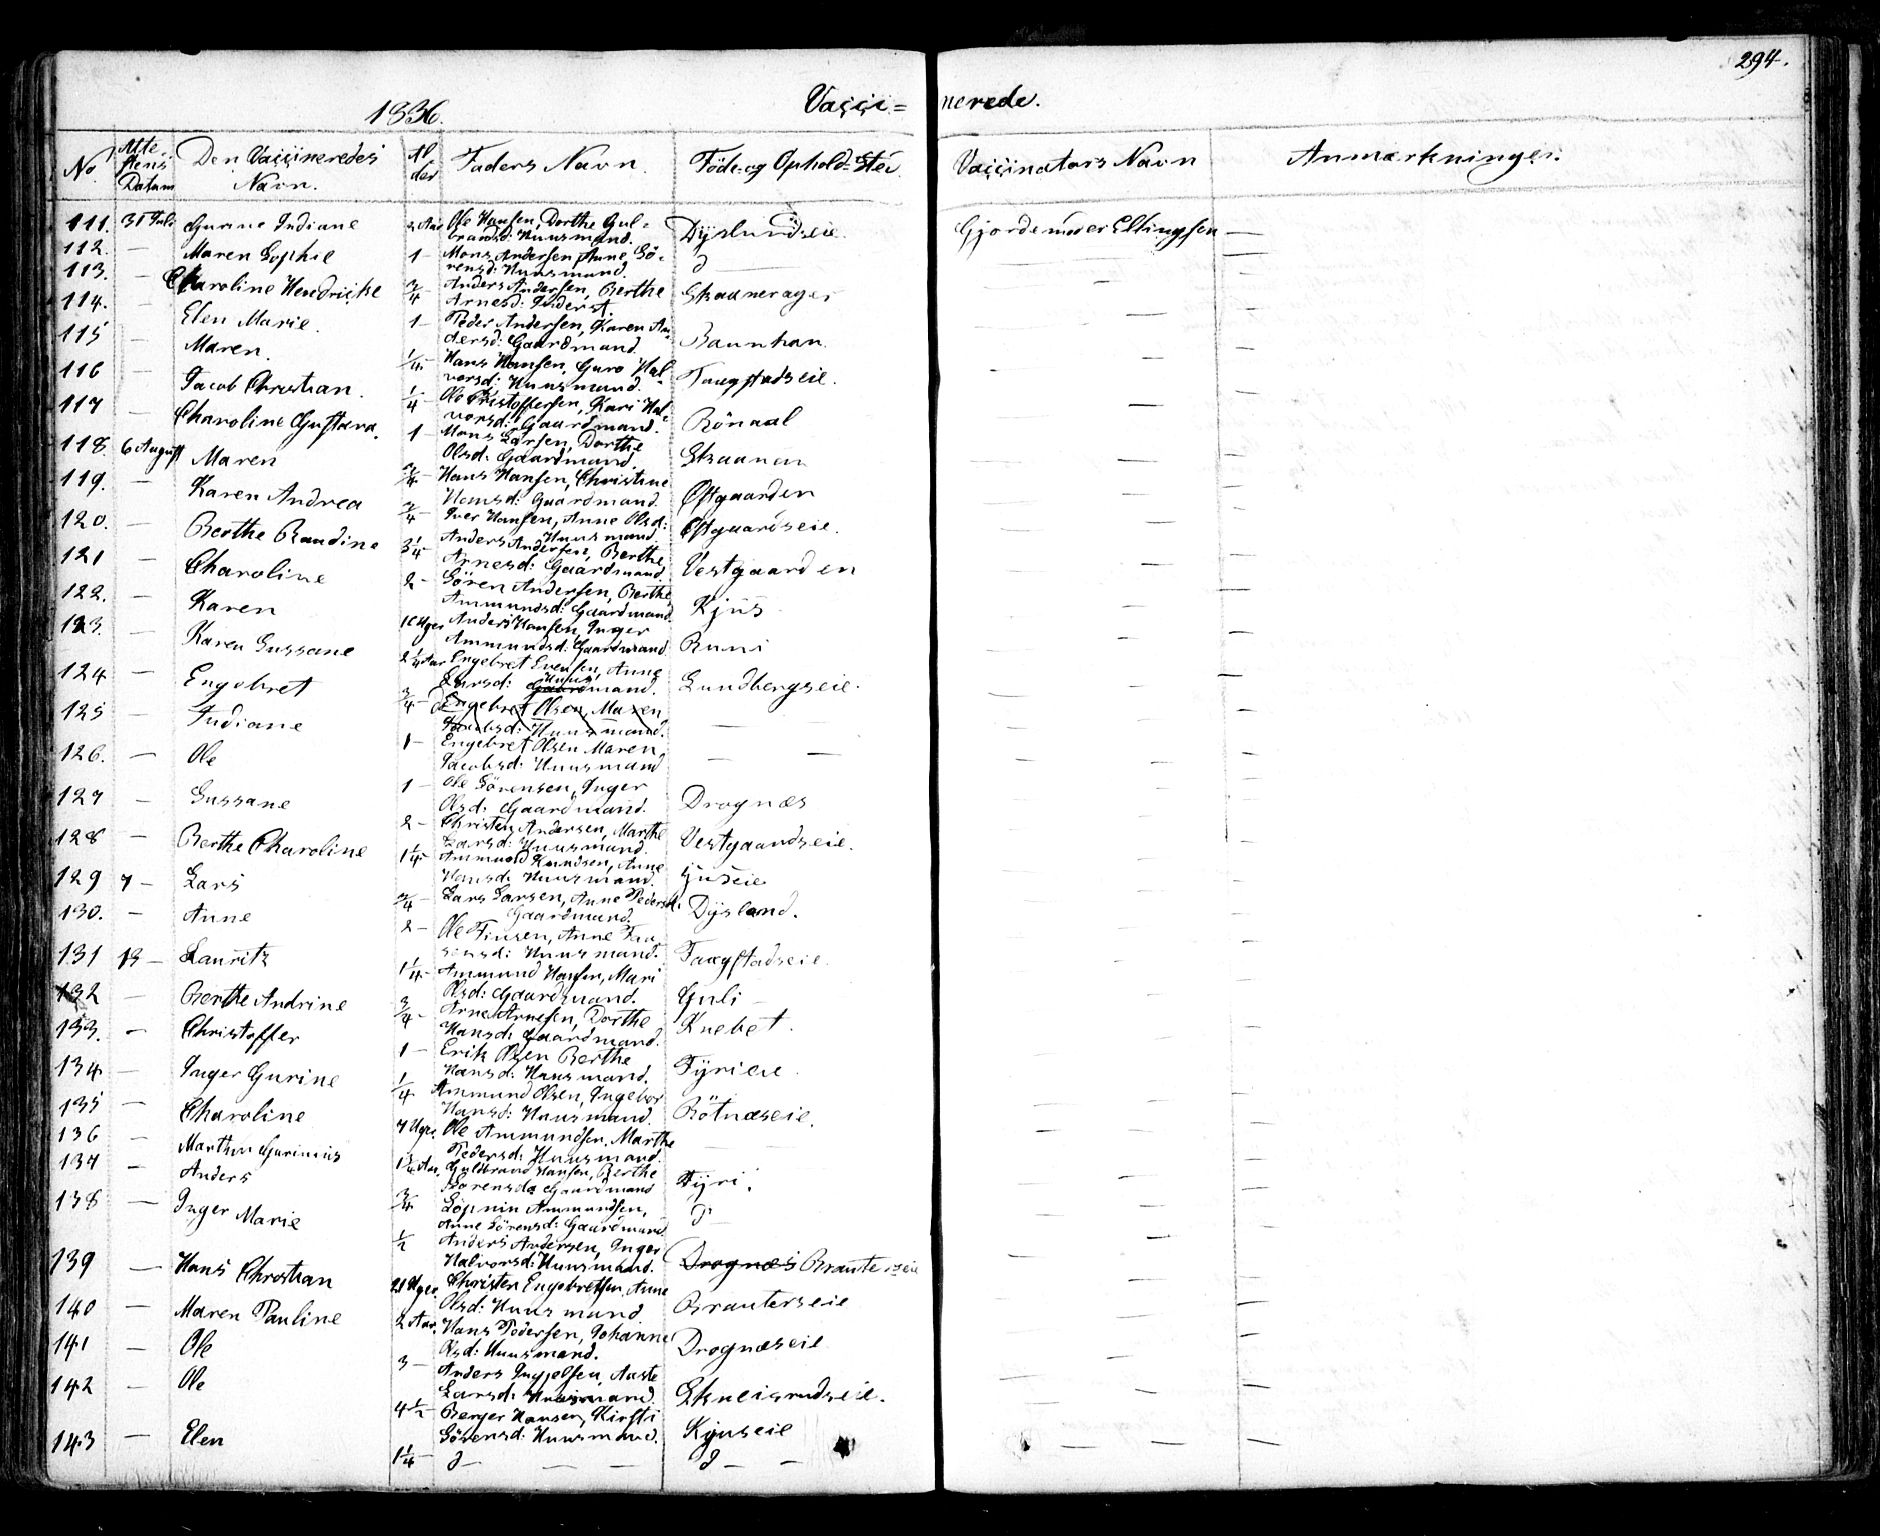 294.
1836. Vaççi= nerede.
No Atte stens Datum Den Vaççineredes Navn. Al der Faders Navn. Föde- og Ophold-Sted Vaççinators Navn Anmærkninger.
111. 31 Juli Gurine Indiane 2 Aar Ole Hansen, Dorthe Gul=
brandsd: Huusmand. Dyslundseie Gjordemoder Ellingsen —
112. — Maren Sophie 1 — Mons Andersen, Anne Sö=
rensd: Huusmand. d —
113. — Charoline Hendricke 3/4 — Anders Andersen, Berthe
Arnesd: Inderst. Skaanerager
114. — Elen Marie. 1 — Peder Andersen, Karen An=
dersd: Gaardmand. Baunhan
115 — Maren. 1/4 — Hans Hansen, Guro Hal=
vorsd: Huusmand. Taugstadseie.
116 — Jacob Christian. 1/4 — Ole Christoffersen, Kari Hal=
vorsd: Gaardmand. Rönaal
117 — Charoline Gustava. 1 — Mons Larsen, Dorthe
Olsd: Gaardmand. Skaanen
118. 6 August Maren 3/4 — Hans Hansen, Christine
Hansd: Gaardmand. Østgaarden
119. — Karen Andrea 3/4 — Iver Hansen, Anne Olsd:
Huusmand. Østgaardseie.
120. — Berthe Randine 3 1/4 — Anders Andersen, Berthe
Arnesd: Gaardmand. Vestgaarden
121 — Charoline 2 — Sören Andersen, Berthe
Ammundsd: Gaardmand Kjus
122. — Karen 10 Uger Anders Hansen, Inger
Ammundsd: Gaardmand Runi
123. — Karen Sussane 2 1/4 Aar Engebret Evensen, Anne
Larsd: Huusmand. Lundbergseie.
124 — Engebret 3/4 — Engebret Olsen, Maren
Jacobsd: Huusmand. — —
125 — Indiane 1 — Engebret Olsen Maren
Jacobsd: Huusmand — —
126. — Ole 1 — Ole Sörensen, Inger
Olsd: Gaardmand. Drognæs
127 — Sussane 2 — Christen Andersen, Marthe
Larsd: Huusmand. Vestgaardseie.
128 — Berthe Charoline 1 1/4 — Ammund Knudsen, Anne
Hansd: Huusmand. Juseie
129 7 — Lars 3/4 — Lars Larsen, Anne Pedersd:
Gaardmand. Dysland.
130. — Anne 2 — Ole Finsen, Anne
Huusmand. Taugstadseie.
131 13 — Lauritz 1 1/4 — Ammund Hansen, Mari
Olsd: Gaardmand. Guli —
132 — Berthe Andrine 3/4 — Arne Arnesen, Dorthe
Hansd: Gaardmand. Knebet.
133. — Christoffer 1 — Erik Olsen Berthe
Hansd: Huusmand. Fyrieie
134 — Inger Gurine 1/4 — Ammund Olsen, Ingebor
Hansd: Huusmand. Rötnæseie.
135 — Charoline 7 Uger. Ole Ammundsen, Marthe
Pedersd: Huusmand. — —
136 — Marthin Gurinius 1 3/4 Aar, Guldbrand Hansen, Berthe
Sörensd: Gaardmand Fyri.
137 — Anders 3/4 — Ammundsen,
Anne Sörensd: Gaardmand. d —
138 — Inger Marie 1/2 Anders Andersen, Inger
Halvorsd: Huusmand. Drognæs Brauterseie
139 — Hans Christian 21 Uger. Christen Engebretsen, Anne
Olsd: Huusmand. Brauterseie
140 — Maren Pauline 2 Aar. Hans Pedersen, Johanne
Olsd: Huusmand. Drognæseie
141 — Ole 3 — Anders Ingjelsen, Aaste
Larsd: Huusmand. Skneisrudseie.
142 — Ole 4 1/2 Berger Hansen, Kirsti
Sörensd: Huusmand. Kjuseie
143 — Elen 1 1/4 — d — — — d — —